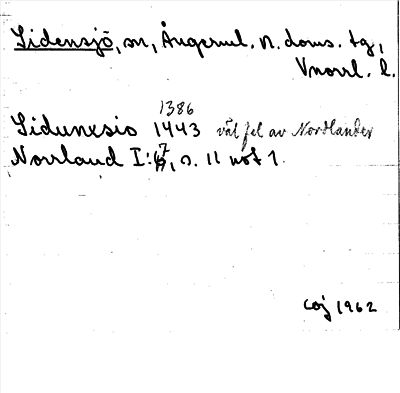 Sidensjö, sn, Ångerml. n. doms. tg,
Vnorrl. l.
1386
Sidunæsio 1443 väl fel av Nordlander
Norrland I:7, s. 11 not 1.
coj 1962